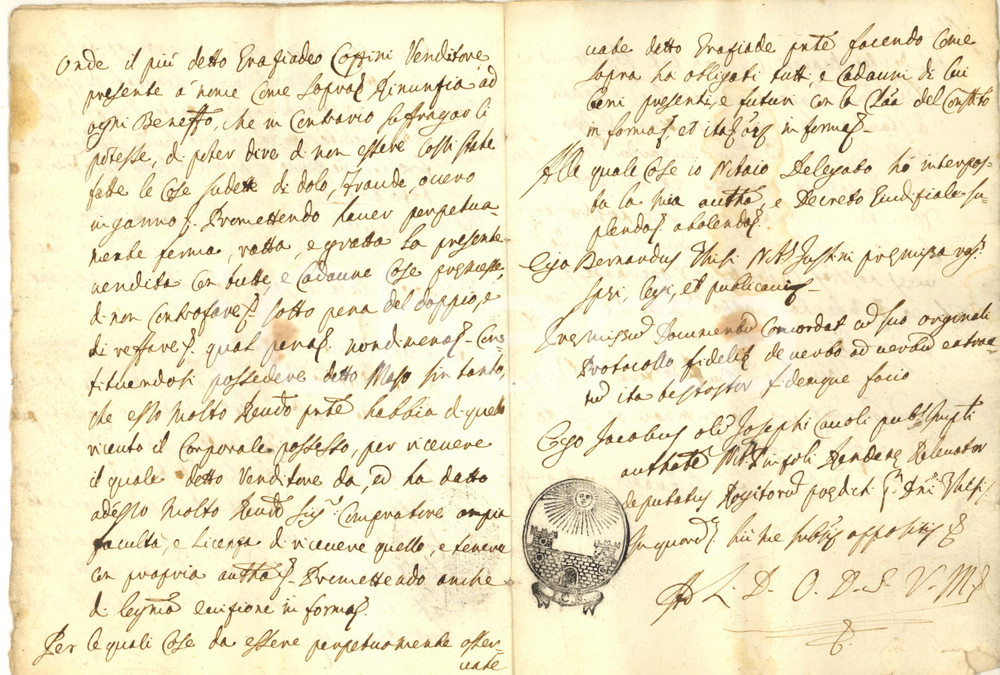 Onde il più detto Erafiadeo Coffini Venditore
presente a nome Come sopra Rinunzia ad
ogni Beneffo, che in Contrario suffragar li
potesse, di poter dire di non essere Cosi state
fatte le Cose sudette di dolo, fraude, overo
inganno. Promettendo haver perpetua-
mente ferma, ratta, e gratta la presente
vendita con tutte, e Cadaune Cose premesse,
di non Controfare sotto pena del doppio, e
di reffare. qual pena. nondimeno. Con-
stituendosi possedere detto Maso sin tanto,
che esso Molto Revdo pnte habbia di quello
ricevuto il Corporale possesso, per ricevere
il quale detto Venditore da, ed ha datto
adesso Molto Revdo Sigr Compratore ampia
facultà, e Licenza di ricevere quello, e tenere
con propria autha. Promettendo anche
di legma evizione in forma.
Per le quali Cose da essere perpetuamente osser-
vate
vate detto Erafiade pnte facendo Come
sopra ha obligati tutti, e Cadauni di lui
beni presenti, e futuri con la Claa del Constito
in forma et ita in forma
Alle quale Cose io Notaio Delegato hò interpos-
ta la mia autha, e Decreto Giudiziale su-
plendo abolendo
Ego Bernardus Not. premissa rog.
scri, legi, et publicavi
Premissu Documentu Concordat cu suo originali
Protocollo fideliter de verbo ad verbu extrac-
tu ita testor fidemque facio
Ego Jacobus olim Josephi publ
authate Not. Tirolis
deputatus Rogitoru predicti q. Dni
In quoru. hic me subsi appositis
Ad L. D. O. D. S. V. M.